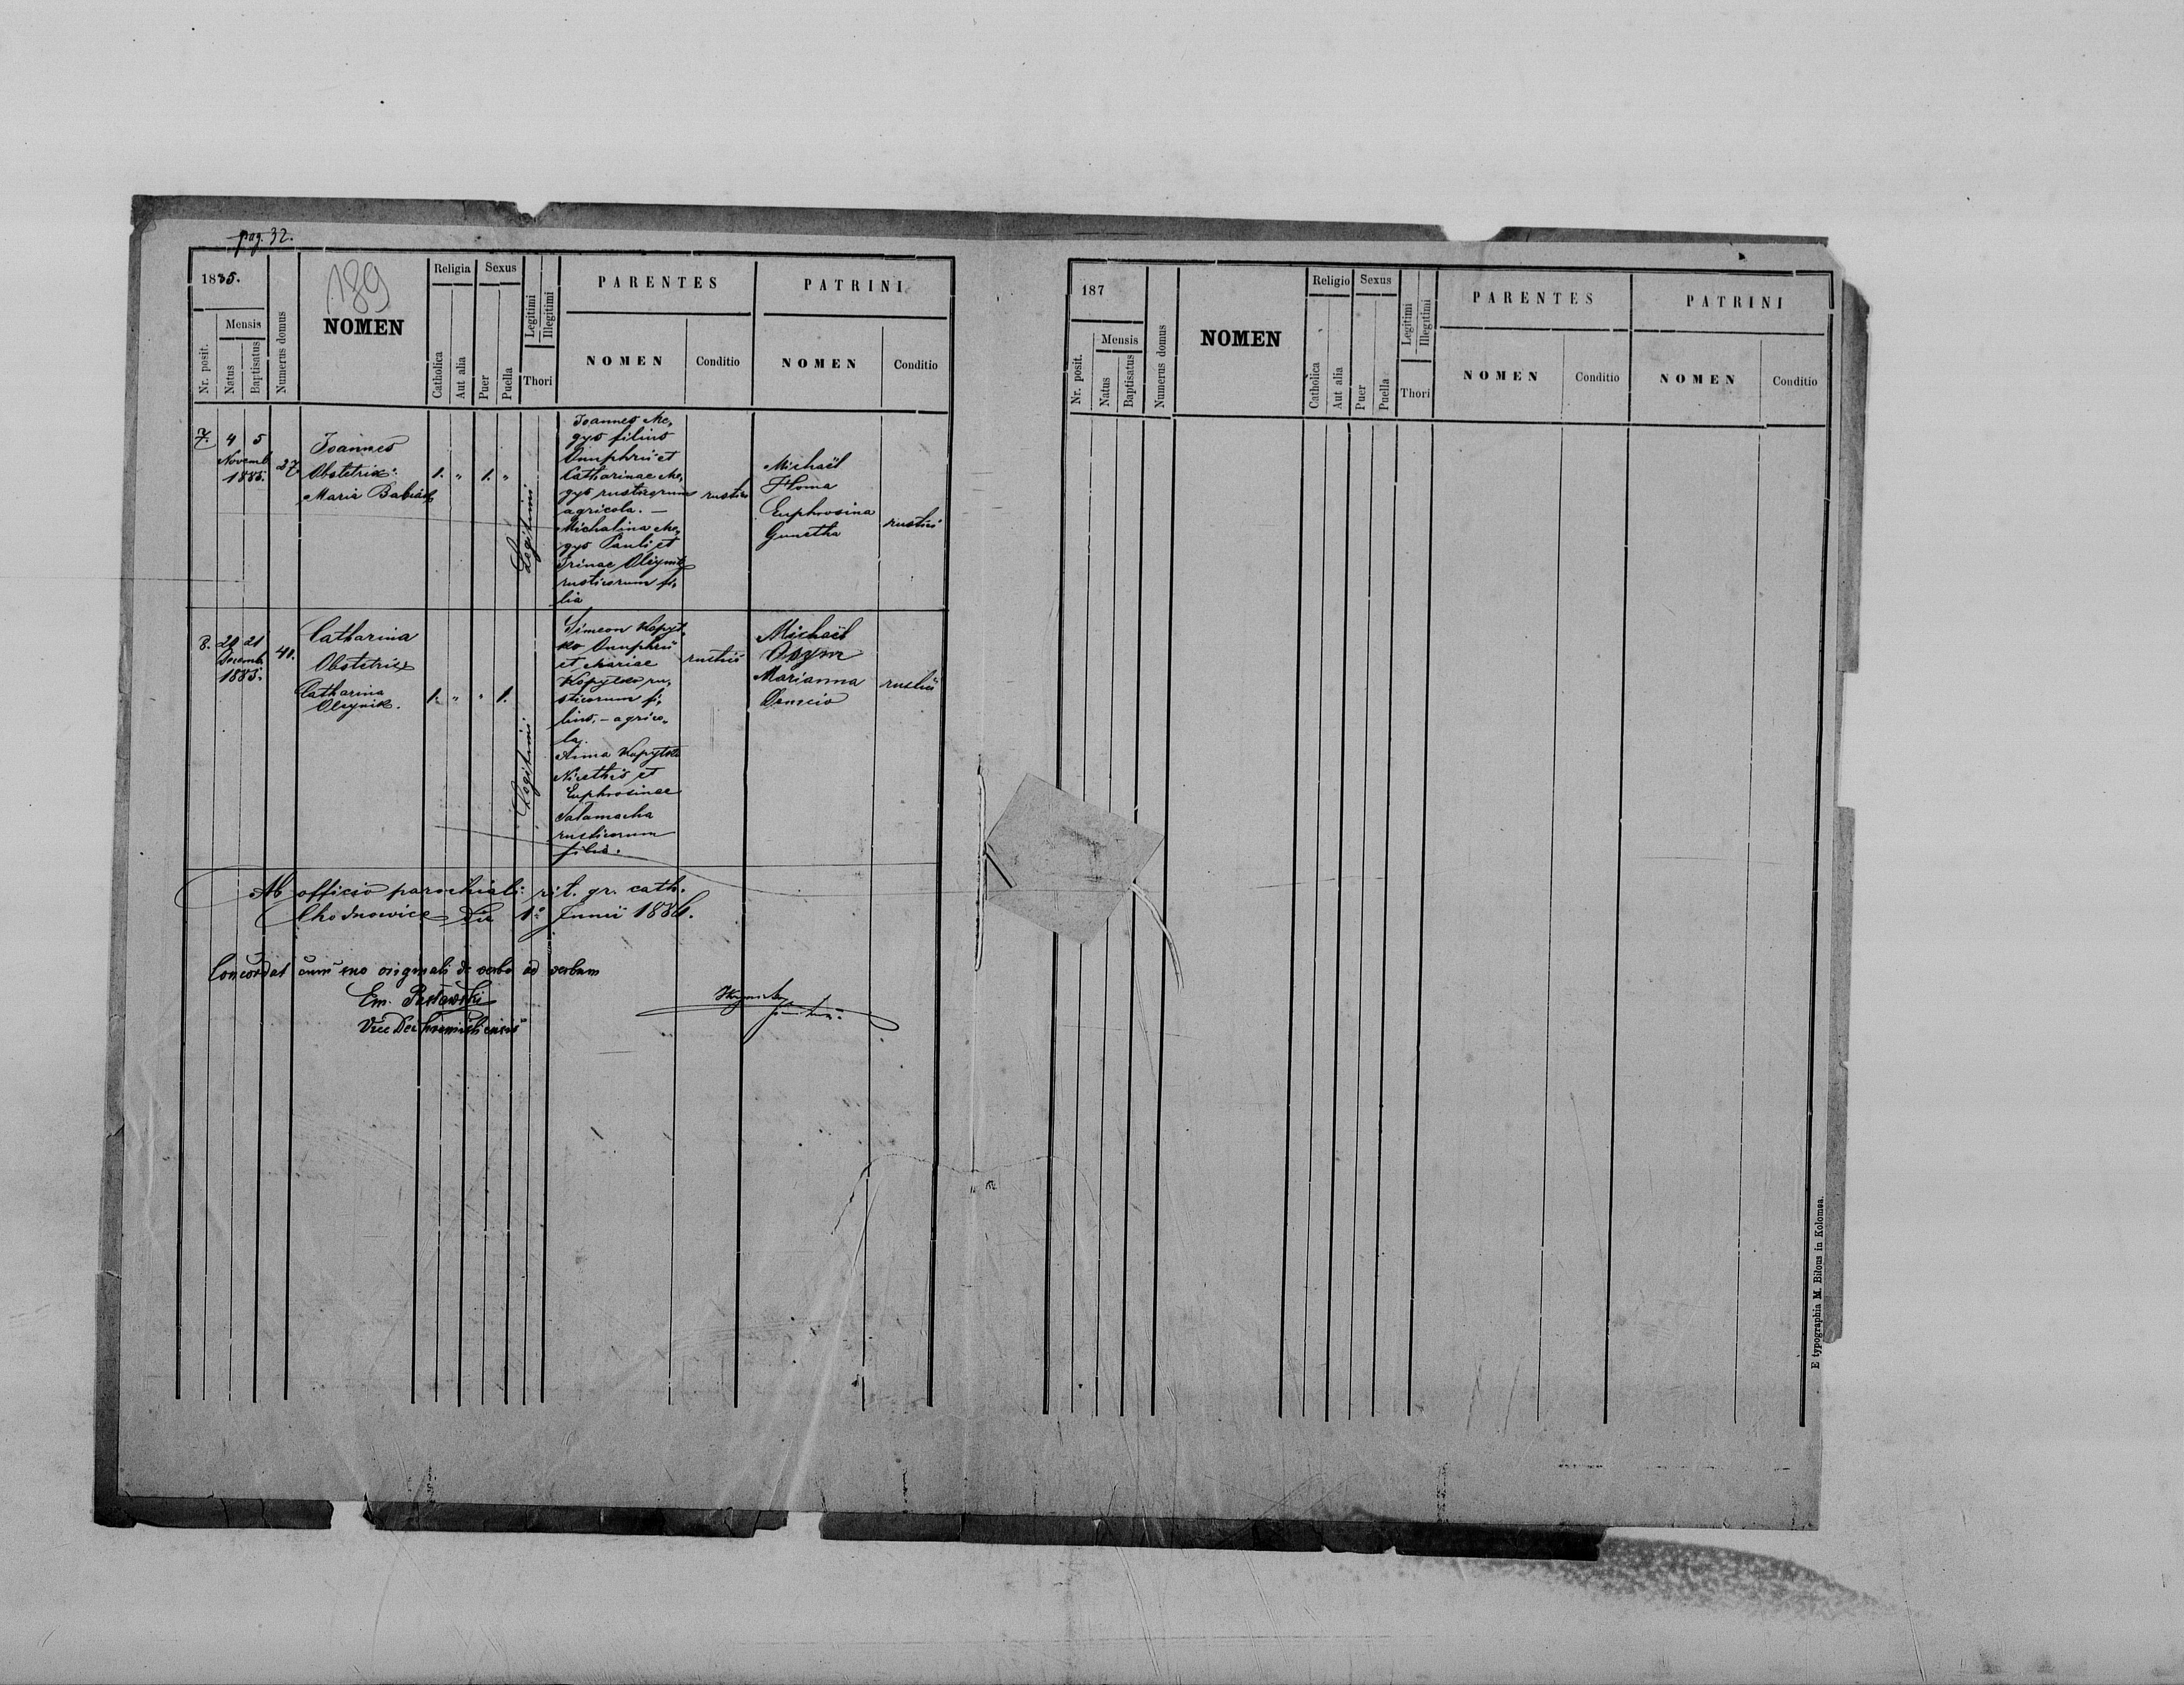 pag. 32.
1885.
189
Nr. posit.
Mensis
Natus
Baptisatus
Numerus domus
NOMEN
Religia
Catholica
Aut alia
Sexus
Puer
Puella
Legitimi
Illegitimi
Thori
PARENTES
NOMEN
Conditio
PATRINI
NOMEN
Conditio
7.
4 5
Novemb
1885.
27
Joannes
Obstetrix:
Maria Babiak
1. " 1. "
Legitimi
Joannes Me,
gys filius
Onuphrii et
Catharinae Me,
gys rusticorum
agricola. —
Michalina Me,
gys Pauli et
Irinae Oleynik
rusticorum fi,
lia
rustici
Michaël
Homa
Euphrosina
rustici
8.
21
Decemb
1885.
41.
Catharina
Obstetrix
Catharina
Oleynik.
1. " " 1.
Legitimi
Simeon Kopyt,
ko Onuphrii
et Mariae
Kopytko ru,
sticorum fi,
lius, – agrico,
la.
Anna Kopytko
et
Euphrosinae
Salamacha
rusticorum
filia.
rustici
Michaël
Marianna
rustici
Ab officio parochiali rit. gr. cath.
Chodnowice die 1a Junii 1886.
Concordat cum suo originali de verbo ad verbum
Em.
Vice Dec
187
Nr. posit.
Mensis
Natus
Baptisatus
Numerus domus
NOMEN
Religio
Catholica
Aut alia
Sexus
Puer
Puella
Legitimi
Illegitimi
Thori
PARENTES
NOMEN
Conditio
PATRINI
NOMEN
Conditio
E typographia M. Biłous in Kolomea.